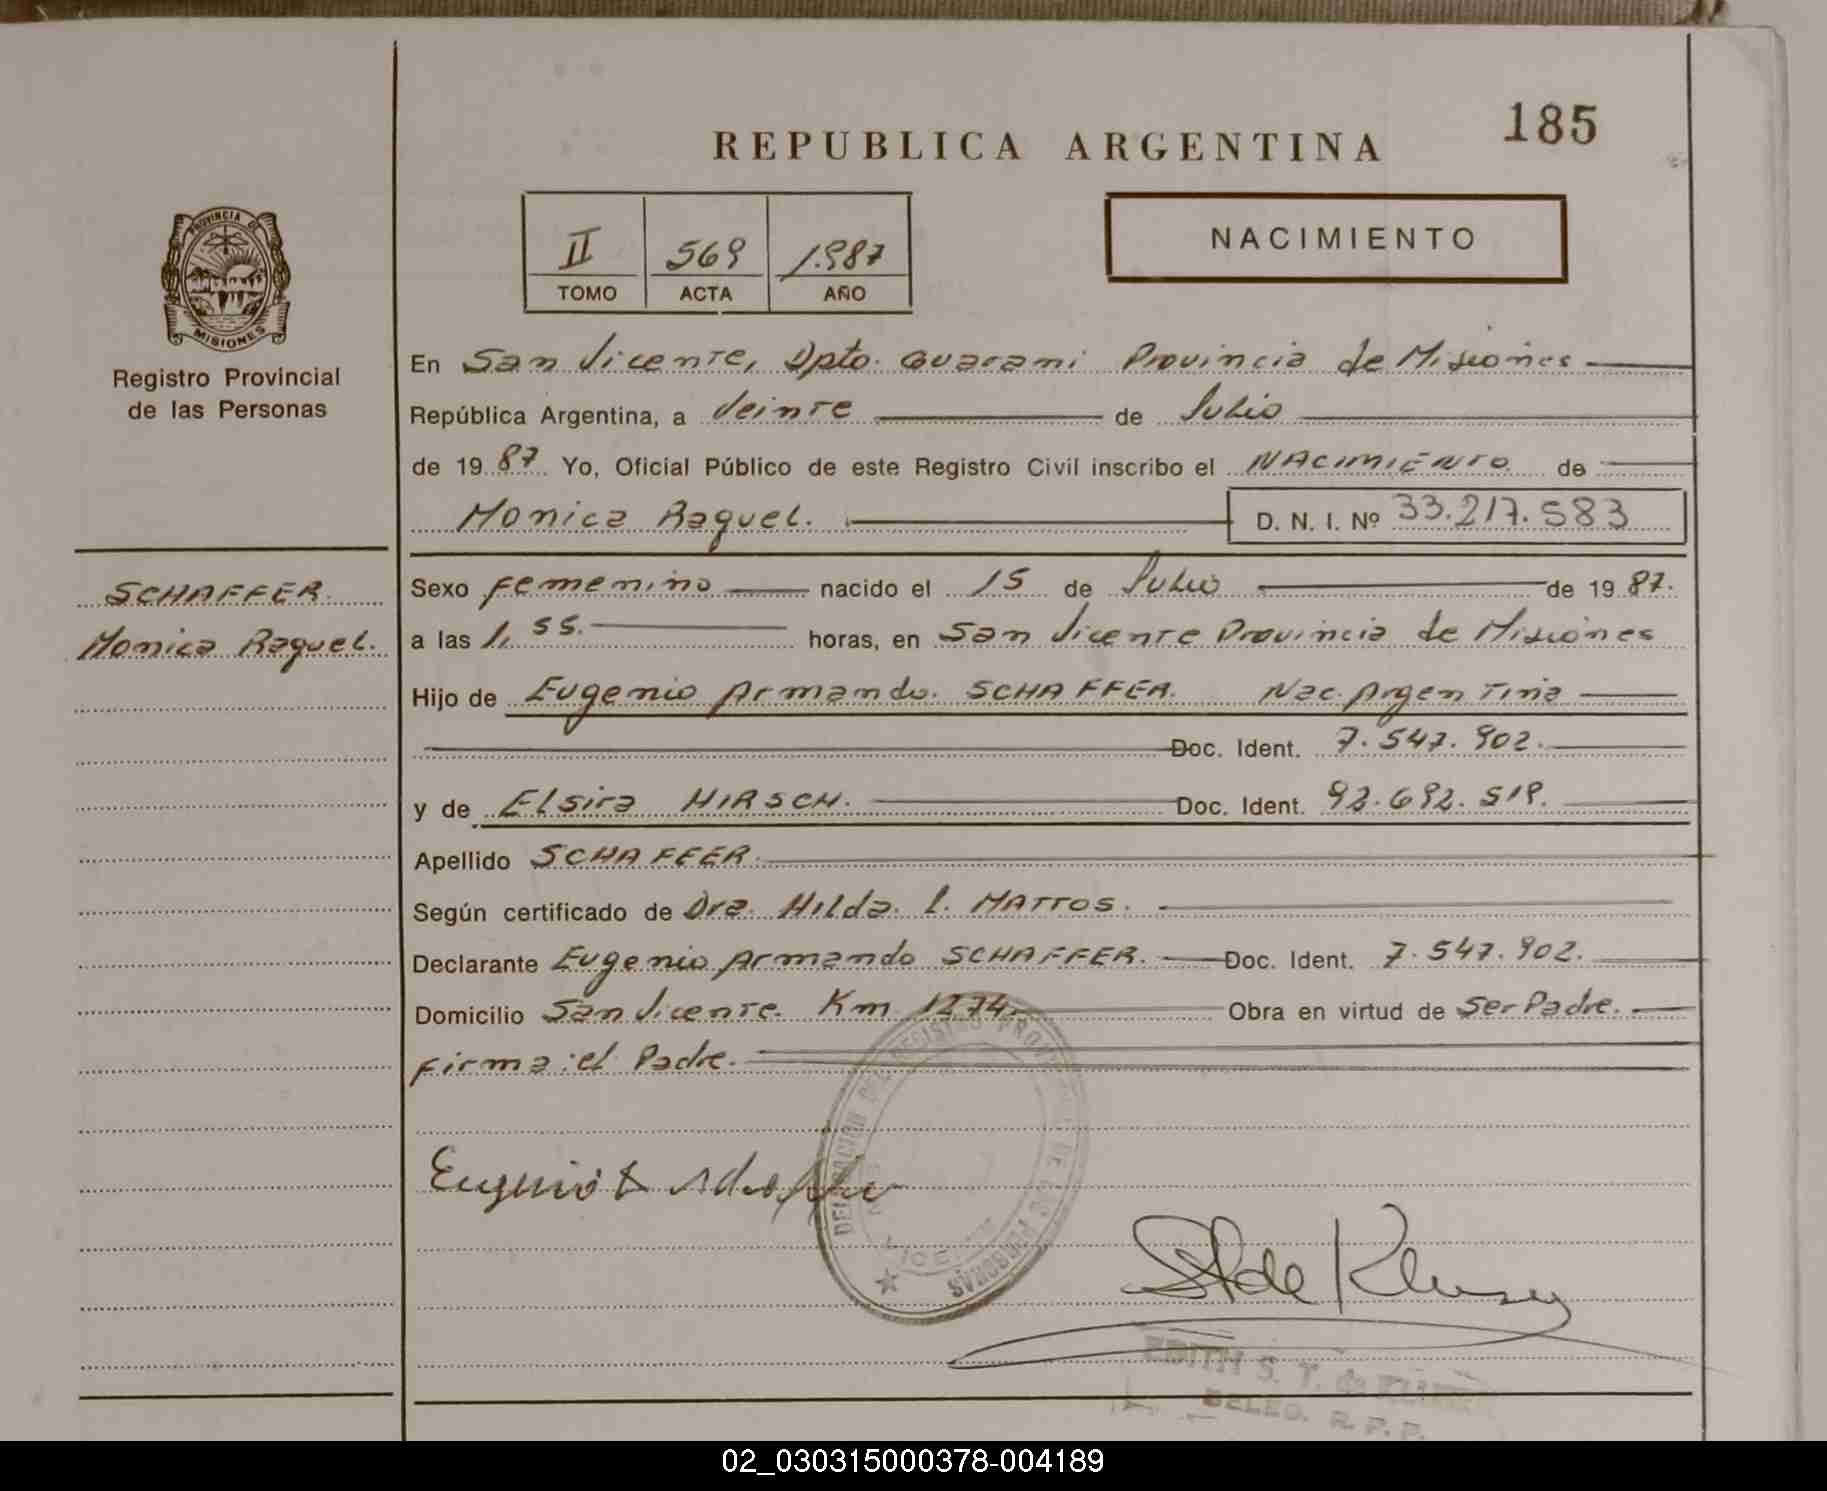 185
REPUBLICA ARGENTINA
II 569 1.987
TOMO ACTA AÑO
NACIMIENTO
PROVINCIA DE
MISIONES
Registro Provincial
de las Personas
En San Vicente, Dpto. Guarani Provincia de Misiones
República Argentina, a Veinte de Julio
de 19 87 Yo, Oficial Público de este Registro Civil inscribo el NACIMIENTO de
Monica Raquel. D. N. I. Nº 33.217.583
SCHAFFER.
Monica Raquel.
Sexo femenino nacido el 15 de Julio de 19 87.
a las 1,55. horas, en San Vicente Provincia de Misiones
Hijo de Eugenio Armando. SCHAFFER. Nac. Argentina
Doc. Ident. 7.547.902.
y de Elsira HIRSCH. Doc. Ident.
Apellido SCHAFFER.
Según certificado de Dra. Hilda. I. MATTOS.
Declarante Eugenio Armando SCHAFFER. Doc. Ident. 7.547.902.
Domicilio San Vicente. Km 1274. Obra en virtud de Ser Padre.
Firma: el Padre.
DELEGACION DEL REGISTRO PROVINCIAL DE LAS PERSONAS
Eugenio A
de
EDITH S. T. de
DELEG. R. P. P.
02_030315000378-004189